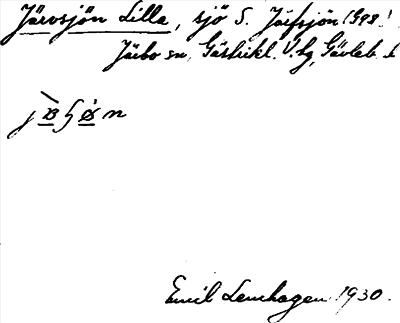 Järvsjön Lilla, sjö S. Järvsjön
Järbo sn, Gästrikl. V. hg, Gävleb. l
Emil Lenhagen 1930.